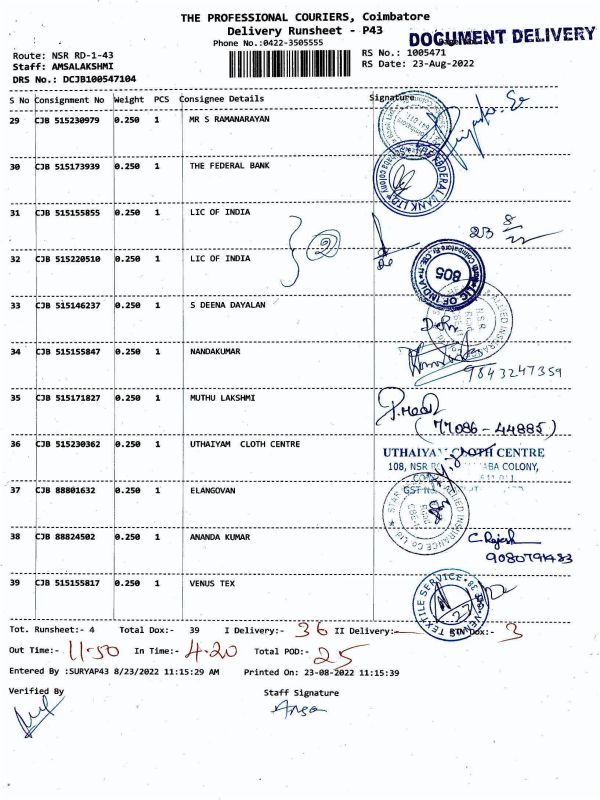 THE PROFESSIONAL COURIERS, Coimbatore
Delivery Runsheet - P43
DOCUMENT DELIVERY
Phone No.:0422-3505555
Route: NSR RD-1-43
RS No.: 1005471
Staff: AMSALAKSHMI
RS Date: 23-Aug-2022
DRS No.: DCJB100547104
S No Consignment No Weight PCS Consignee Details Signature
29 CJB 515230979 0.250 1 MR S RAMANARAYAN
30 CJB 515173939 0.250 1 THE FEDERAL BANK
31 CJB 515155855 0.250 1 LIC OF INDIA
2
23 8
32 CJB 515220510 0.250 1 LIC OF INDIA
805
LIC OF INDIA
33 CJB 515146237 0.250 1 S DEENA DAYALAN
N.S.R.
34 CJB 515155847 0.250 1 NANDAKUMAR
9843247359
35 CJB 515171827 0.250 1 MUTHU LAKSHMI
(77086-44885)
36 CJB 515230362 0.250 1 UTHAIYAM CLOTH CENTRE
UTHAIYAM CLOTH CENTRE
108, NSR
COLONY,
37 CJB 88801632 0.250 1 ELANGOVAN
GST
38 CJB 88824502 0.250 1 ANANDA KUMAR
C. Rajesh
9080791483
39 CJB 515155817 0.250 1 VENUS TEX
TEXTILE SERVICE
Tot. Runsheet:- 4 Total Dox:- 39 I Delivery:- 36 II Delivery:- RTN Dox:- 3
Out Time:- 11.50 In Time:- 4.20 Total POD:- 25
Entered By :SURYAP43 8/23/2022 11:15:29 AM Printed On: 23-08-2022 11:15:39
Verified By
Staff Signature